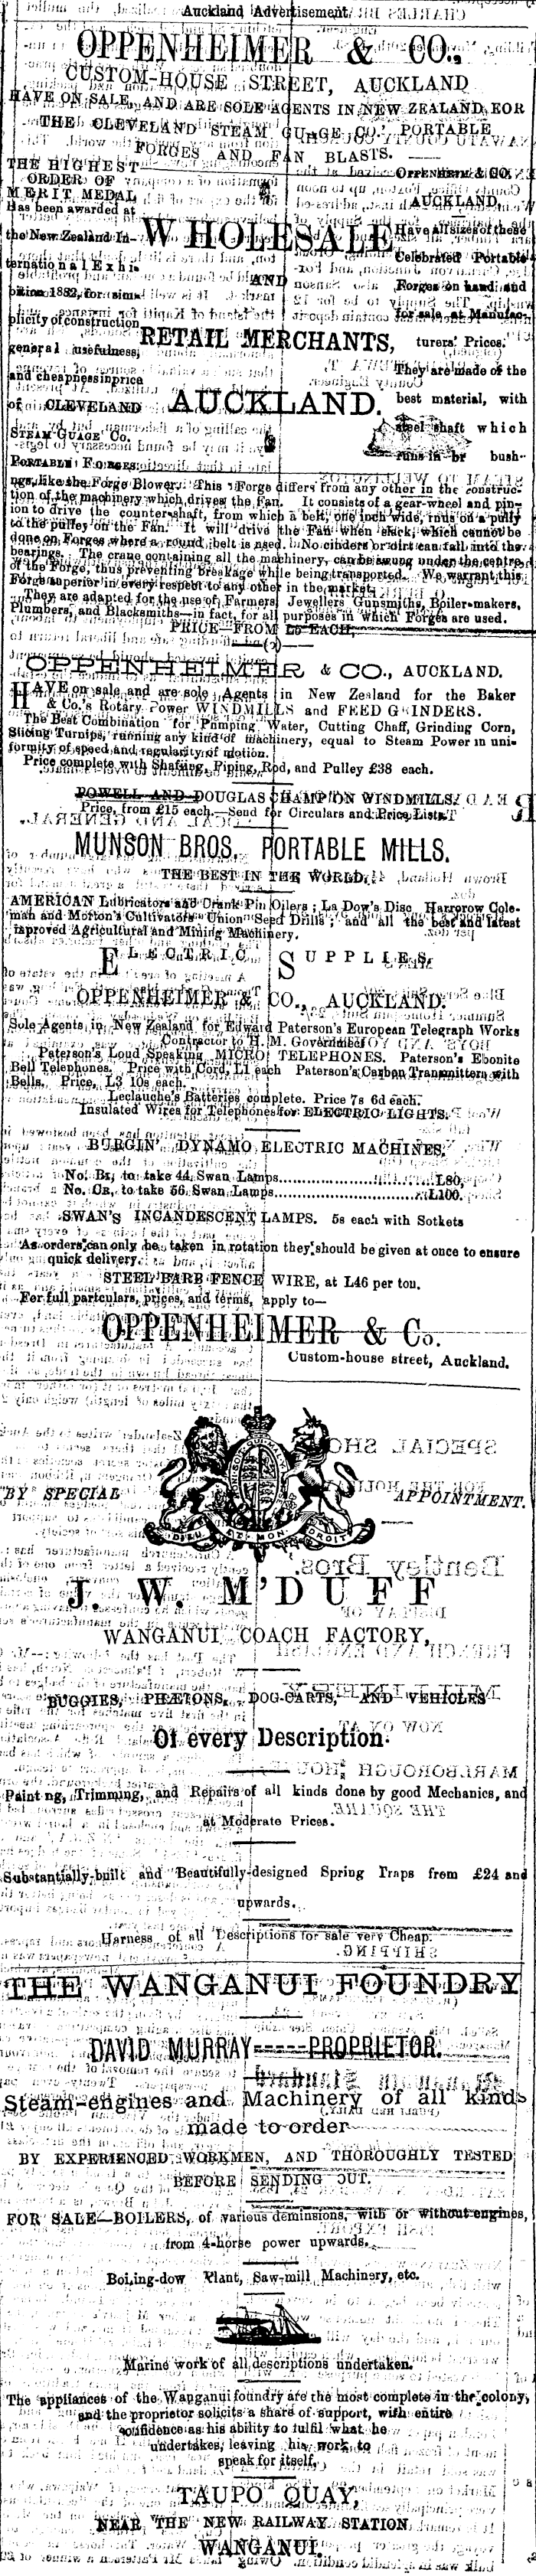 Auckland Advertisement.
OPPENHEIMER & CO.,
CUSTOM-HOUSE STREET, AUCKLAND
HAVE ON SALE, AND ARE SOLE AGENTS IN NEW ZEALAND FOR
THE CLEVELAND STEAM GUAGE CO.' PORTABLE
FORGES AND FAN BLASTS.
THE HIGHEST
ORDER OF
MERIT MEDAL
Has been awarded at
the New Zealand In-
ternational Exhi-
bition 1882, for sim-
plicity of construction
general usefulness,
and cheapness in price
of CLEVELAND
STEAM GUAGE Co.
PORTABLE FORGES.
WHOLESALE
AND
RETAIL MERCHANTS,
AUCKLAND.
OPPENHEIM & CO.
AUCKLAND,
Have all sizes of these
Celebrated Portable
Forges on hand and
for sale at Manufac-
turers' Prices.
They are made of the
best material, with
steel shaft which
runs in br bush-
ngs, like the Forge Blower. This Forge differs from any other in the construc-
tion of the machinery which drives the Fan. It consists of a gear-wheel and pin-
ion to drive the counter-shaft, from which a belt, one inch wide, runs on a pully
to the pulley on the Fan. It will drive the Fan when slack, which cannot be
done on Forges where a round belt is used. No cinders or dirt can fall into the
bearings. The crane containing all the machinery, can be swung under the centre
of the Forge, thus preventing breakage while being transported. We warrant this
Forge superior in every respect to any other in the market.
They are adapted for the use of Farmers, Jewellers Gunsmiths, Boiler-makers,
Plumbers, and Blacksmiths—in fact, for all purposes in which Forges are used.
PRICE—FROM £5 EACH.
OPPENHEIMER & CO., AUCKLAND.
HAVE on sale and are sole Agents in New Zealand for the Baker
& Co.'s Rotary Power WINDMILLS and FEED GRINDERS.
The Best Combination for Pumping Water, Cutting Chaff, Grinding Corn,
Slicing Turnips, running any kind of machinery, equal to Steam Power in uni-
formity of speed and regularity of motion.
Price complete with Shafting, Piping, Rod, and Pulley £38 each.
POWELL AND DOUGLAS CHAMPION WINDMILLS.
Price, from £15 each—Send for Circulars and Price Lists.
MUNSON BROS. PORTABLE MILLS.
THE BEST IN THE WORLD.
AMERICAN Lubricators and Crank Pin Oilers; La Dow's Disc Harrow Cole-
man and Morton's Cultivators Union Seed Drills; and all the best and latest
improved Agricultural and Mining Machinery.
ELECTRIC SUPPLIES.
OPPENHEIMER & CO., AUCKLAND.
Sole Agents in New Zealand for Edward Paterson's European Telegraph Works
Contractor to H. M. Government
Paterson's Loud Speaking MICRO TELEPHONES. Paterson's Ebonite
Bell Telephones. Price with Cord, L1 each Paterson's Carbon Transmitters with
Bells. Price, L3 10s each.
Leclauche's Batteries complete. Price 7s 6d each.
Insulated Wires for Telephones for ELECTRIC LIGHTS.
BURGIN DYNAMO ELECTRIC MACHINES.
No. B1, to take 44 Swan Lamps L80.
No. CR, to take 56 Swan Lamps L100.
SWAN'S INCANDESCENT LAMPS. 5s each with Sotkets
As orders can only be taken in rotation they should be given at once to ensure
quick delivery.
STEEL BARB FENCE WIRE, at L46 per ton.
For full partculars, prices, and terms, apply to—
OPPENHEIMER & Co.
Custom-house street, Auckland.
DIEU ET MON DROIT
BY SPECIAL APPOINTMENT.
J. W. M'DUFF
WANGANUI COACH FACTORY,
BUGGIES, PHÆTONS, DOG-CARTS, AND VEHICLES
Of every Description.
Paint ng, Trimming, and Repairs of all kinds done by good Mechanics, and
at Moderate Prices.
Substantially-built and Beautifully-designed Spring Traps from £24 and
upwards.
Harness of all Descriptions for sale very Cheap.
THE WANGANUI FOUNDRY
DAVID MURRAY-----PROPRIETOR.
Steam-engines and Machinery of all kinds
made to order
BY EXPERIENCED WORKMEN, AND THOROUGHLY TESTED
BEFORE SENDING OUT.
FOR SALE—BOILERS, of various deminsions, with or without engines,
from 4-horse power upwards.
Boiling-dow Plant, Saw-mill Machinery, etc.
Marine work of all descriptions undertaken.
The appliances of the Wanganui foundry are the most complete in the colony,
and the proprietor solicits a share of support, with entire
confidence as his ability to fulfil what he
undertakes, leaving his work to
speak for itself.
TAUPO QUAY,
NEAR THE NEW RAILWAY STATION
WANGANUI.